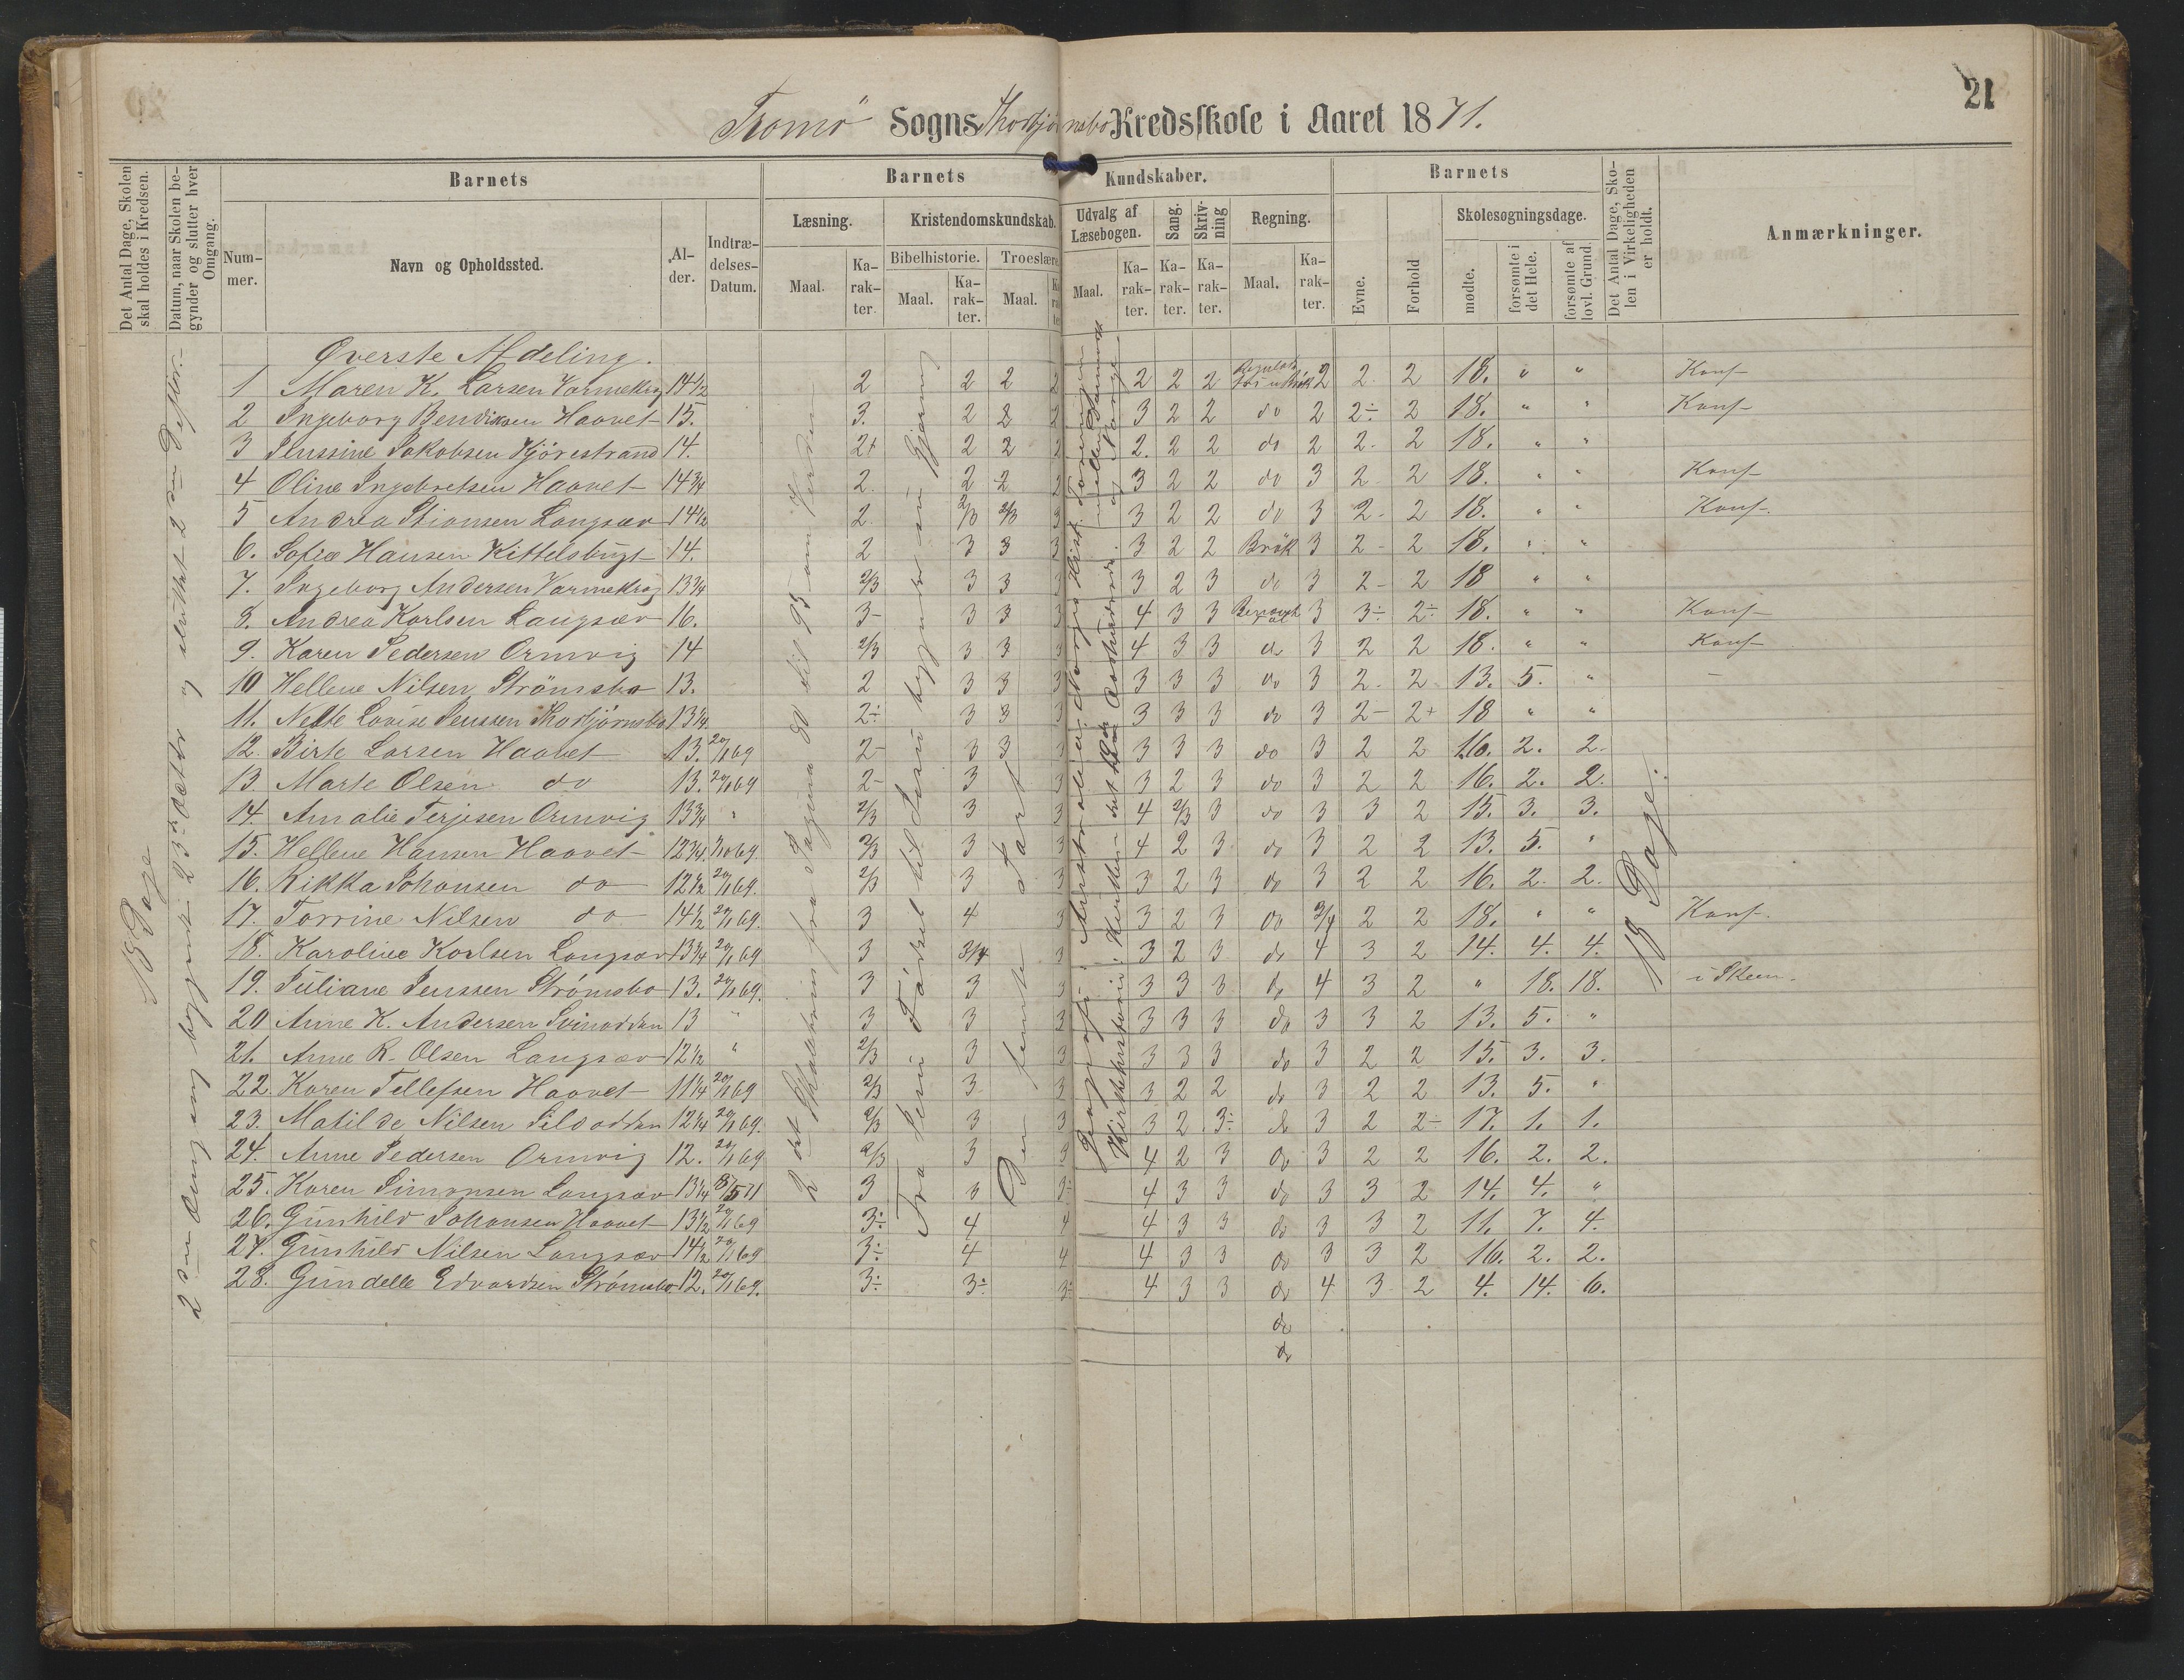 21
Tromø Sogns Thorbjørnsbo Kredsskole i Aaret 1871.
Det Antal Dage, Skolen skal holdes i Kredsen.
Datum, naar Skolen begynder og slutter hver Omgang.
Barnets
Nummer.
Navn og Opholdssted.
Alder.
Indtrædelses-Datum.
Barnets Kundskaber.
Læsning.
Maal.
Karakter.
Kristendomskundskab.
Bibelhistorie.
Maal.
Karakter.
Troeslære
Maal.
Udvalg af Læsebogen.
Maal.
Karakter.
Sang.
Karakter.
Skrivning
Karakter.
Regning.
Maal.
Karakter.
Barnets
Evne.
Forhold
Skolesøgningsdage.
mødte.
forsømte i det Hele.
forsømte af lovl. Grund.
Det Antal Dage, Skolen i Virkeligheden er holdt.
Anmærkninger.
18 Dage
18 Dage.
Øverste Afdeling.
1 Maren K. Larsen Varmekrog 14 1/2 2 2 2 2 2 2 2 2 2 2 18. " " Konf
2 Ingeborg Bendixen Haavet 15. 3. 2 2 2 3 2 2 do 2 2÷ 2 18. " " Konf
3 Jenssine Jakobsen Hjørestrand 14. 2+ 2 2 2 2. 2 2 do 2 2- 2 18. " "
4 Oline Ingebretsen Haavet 14 3/4 2. 2 2 2 3 2 2 do 3 2- 2 18. " " Konf
5 Andrea Stiansen Langsæv 14 1/2 2. 2/3 2/3 3 3 2 2 do 3 2- 2 18. " " Konf.
6. Sofie Hansen Kittelsbugt 14. 2 3 3 3 3 2 2 Brøk 3 2- 2 18. " "
7. Ingeborg Andersen Varmekrog 13 3/4 2/3 3 3 3 3 2 3 do 3 2- 2 18 " "
8. Andrea Karlsen Langsæv 16. 3- 3 3 3 4 3 3 3 3÷ 2÷ 18. " " Konf
9. Karen Pedersen Ormvig 14 2/3 3 3 3 4 3 3 do 3 2 2 18. " " Konf
10 Hellene Nilsen Strømsbo 13. 2 3 3 3 3 3 3 do 3 2- 2 13. 5. "
11. Nette Lovise Jenssen Thorbjørnsbo 13 1/4 2÷ 3 3 3 3 3 3 do 3 2- 2+ 18 " "
12. Birte Larsen Haavet 13. 20/11 69 2- 3 3 3 3 3 3 do 3 2 2 16. 2. 2.
13. Marte Olsen do 13. 20/11 69 2- 3 3 3 2 3 do 3 2 2 16. 2. 2.
14 Amalie Terjesen Ormvig 13 3/4 " 2/3 3 3 4 2/3 3 do 3 3 2 15. 3. 3.
15. Hellene Hansen Haavet 12 3/4 69. 2/3 3 3 4 2 3 do 3 2 2 13. 5. "
16. Kikka Johansen do 12 1/2 20/11 69. 2/3 3 3 3 2 3 do 3 2 2 16. 2. 2.
17. Torrine Nilsen do 14 1/2 20/11 69. 3 4 3 3 2 3 do 3/4 2 2 18. " " Konf.
18. Karoline Karlsen Langsæv 13 3/4 20/11 69 3 3/4 3 3 2 3 do 4 3 2 14. 4. 4.
19. Juliane Jenssen Strømsbo 13. 20/11 69. 3 3 3 3 3 3 do 4 3 2 " 18. 18. i Skeen.
20 Anne K. Andersen Svinodden 13 " 3 3 3 3 3 3 do 3 3 2 13. 5. "
21. Anne R. Olsen Langsæv 12 1/2 " 2/3 3 3 3 3 3 do 3 2 2 15. 3. 3.
22. Karen Tellefsen Haavet 11 1/4 20/11 69 2/3 3 3 3 2 2 do 3 2 2 13. 5. "
23. Matilde Nilsen Silodden 12 1/4 20/11 69. 2/3 3 3 3 2 3÷ do 3 2 2÷ 17. 1. 1.
24. Anne Pedersen Ormvig 12. 20/11 69 2/3 3 3 4 2 3 do 3 2 2 16. 2. 2.
25. Karen Simonsen Langsæv 13 1/4 8/5 71 3 3 3÷ 4 3 3 do 3 3 2 14. 4. "
26. Gunhild Johansen Haavet 13 1/2 20/11 69 3÷ 4 4 4 3 3 do 3 3 2 11. 7. 4.
27. Gunhild Nilsen Langsæv 14 1/2 20/11 69 3÷ 4 4 4 3 3 do 3 3 2 16. 2. 2.
28. Gundelle Edvardsen Strømsbo 12. 20/11 69. 3÷ 3÷ 3÷ 4 3 3 do 4 3 2 4. 14. 6.
do
do